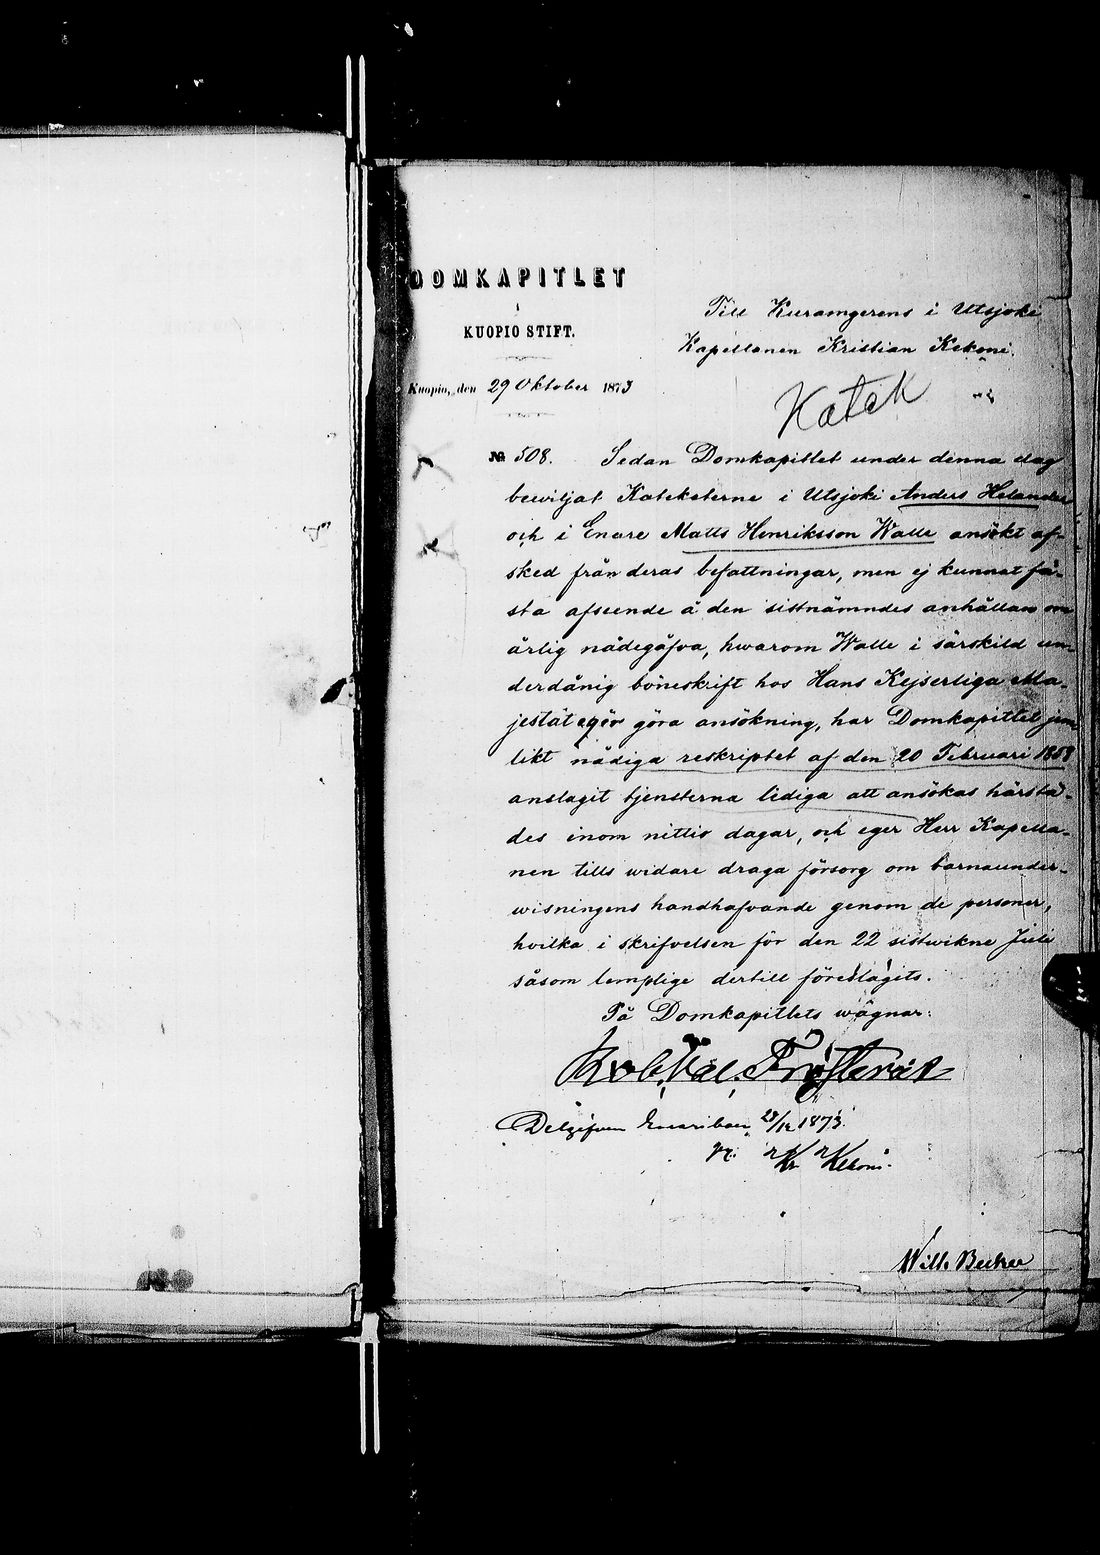 DOMKAPITLET
i
KUOPIO STIFT.
Kuopio, den 29 Oktober 1873
Till Kuramgerens i Utsjoki
Kapellanen Kristian Kekoni.
Katek
№ 508. Sedan Domkapitlet under denna dag
bewiljat Kateketerne i Utsjoki Anders Helander
och i Enare Matts Henriksson Walle ansökt af-
sked från deras befattningar, men ej kunnat fä-
sta afseende å den sistnämndes anhållan om
årlig nådegåfva, hwarom Walle i särskild un-
derdånig böneskrift hos Hans Kejserliga Ma-
jestät egör göra ansökning, har Domkapitlet jem
likt nådiga reskriptet af den 20 Februari 1858
anslagit tjensterna lediga att ansökas härstä-
des inom nittio dagar, och eger Herr Kapella-
nen tills widare draga försorg om barnaunder-
wisningens handhafvande genom de personer,
hvilka i skrifvelsen för den 22 sistwikne Juli
såsom lemplige dertill föreslagits.
På Domkapitlets wägnar:
Rob. Val. Frosterus
Delgifven Enariby 28/12 1873.
Kr Kekoni.
Wilh. Becker